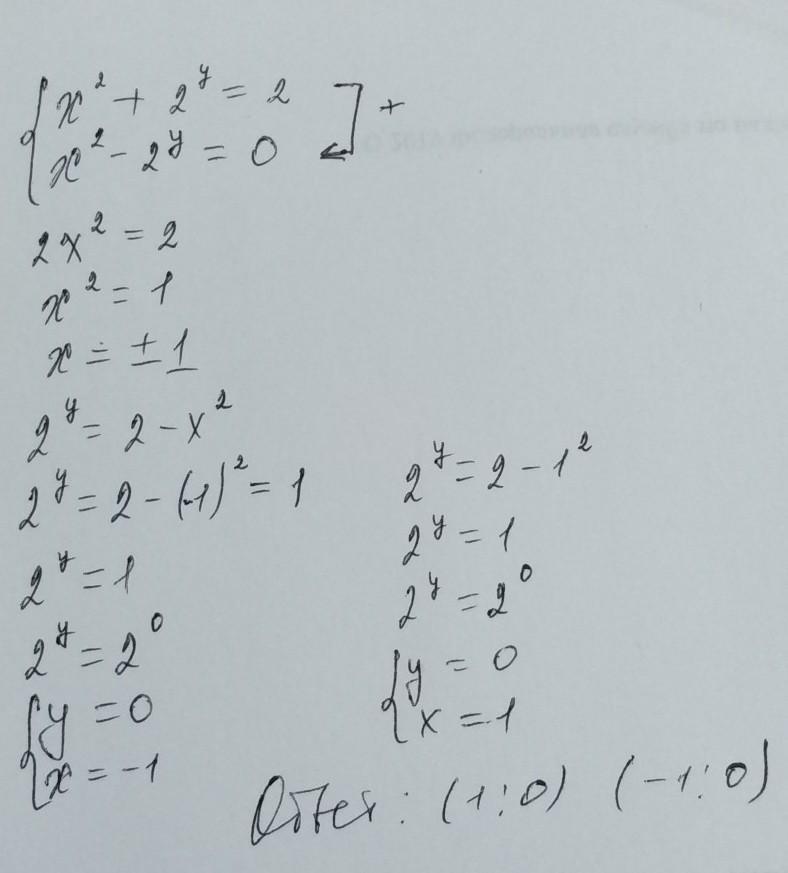 { x² + 2ʸ = 2 ] +
x² - 2ʸ = 0
2x² = 2
x² = 1
x = ±1
2ʸ = 2 - x²
2ʸ = 2 - (-1)² = 1
2ʸ = 1
2ʸ = 2⁰
{ y = 0
x = -1
2ʸ = 2 - 1²
2ʸ = 1
2ʸ = 2⁰
{ y = 0
x = 1
Ответ: (1; 0) (-1; 0)